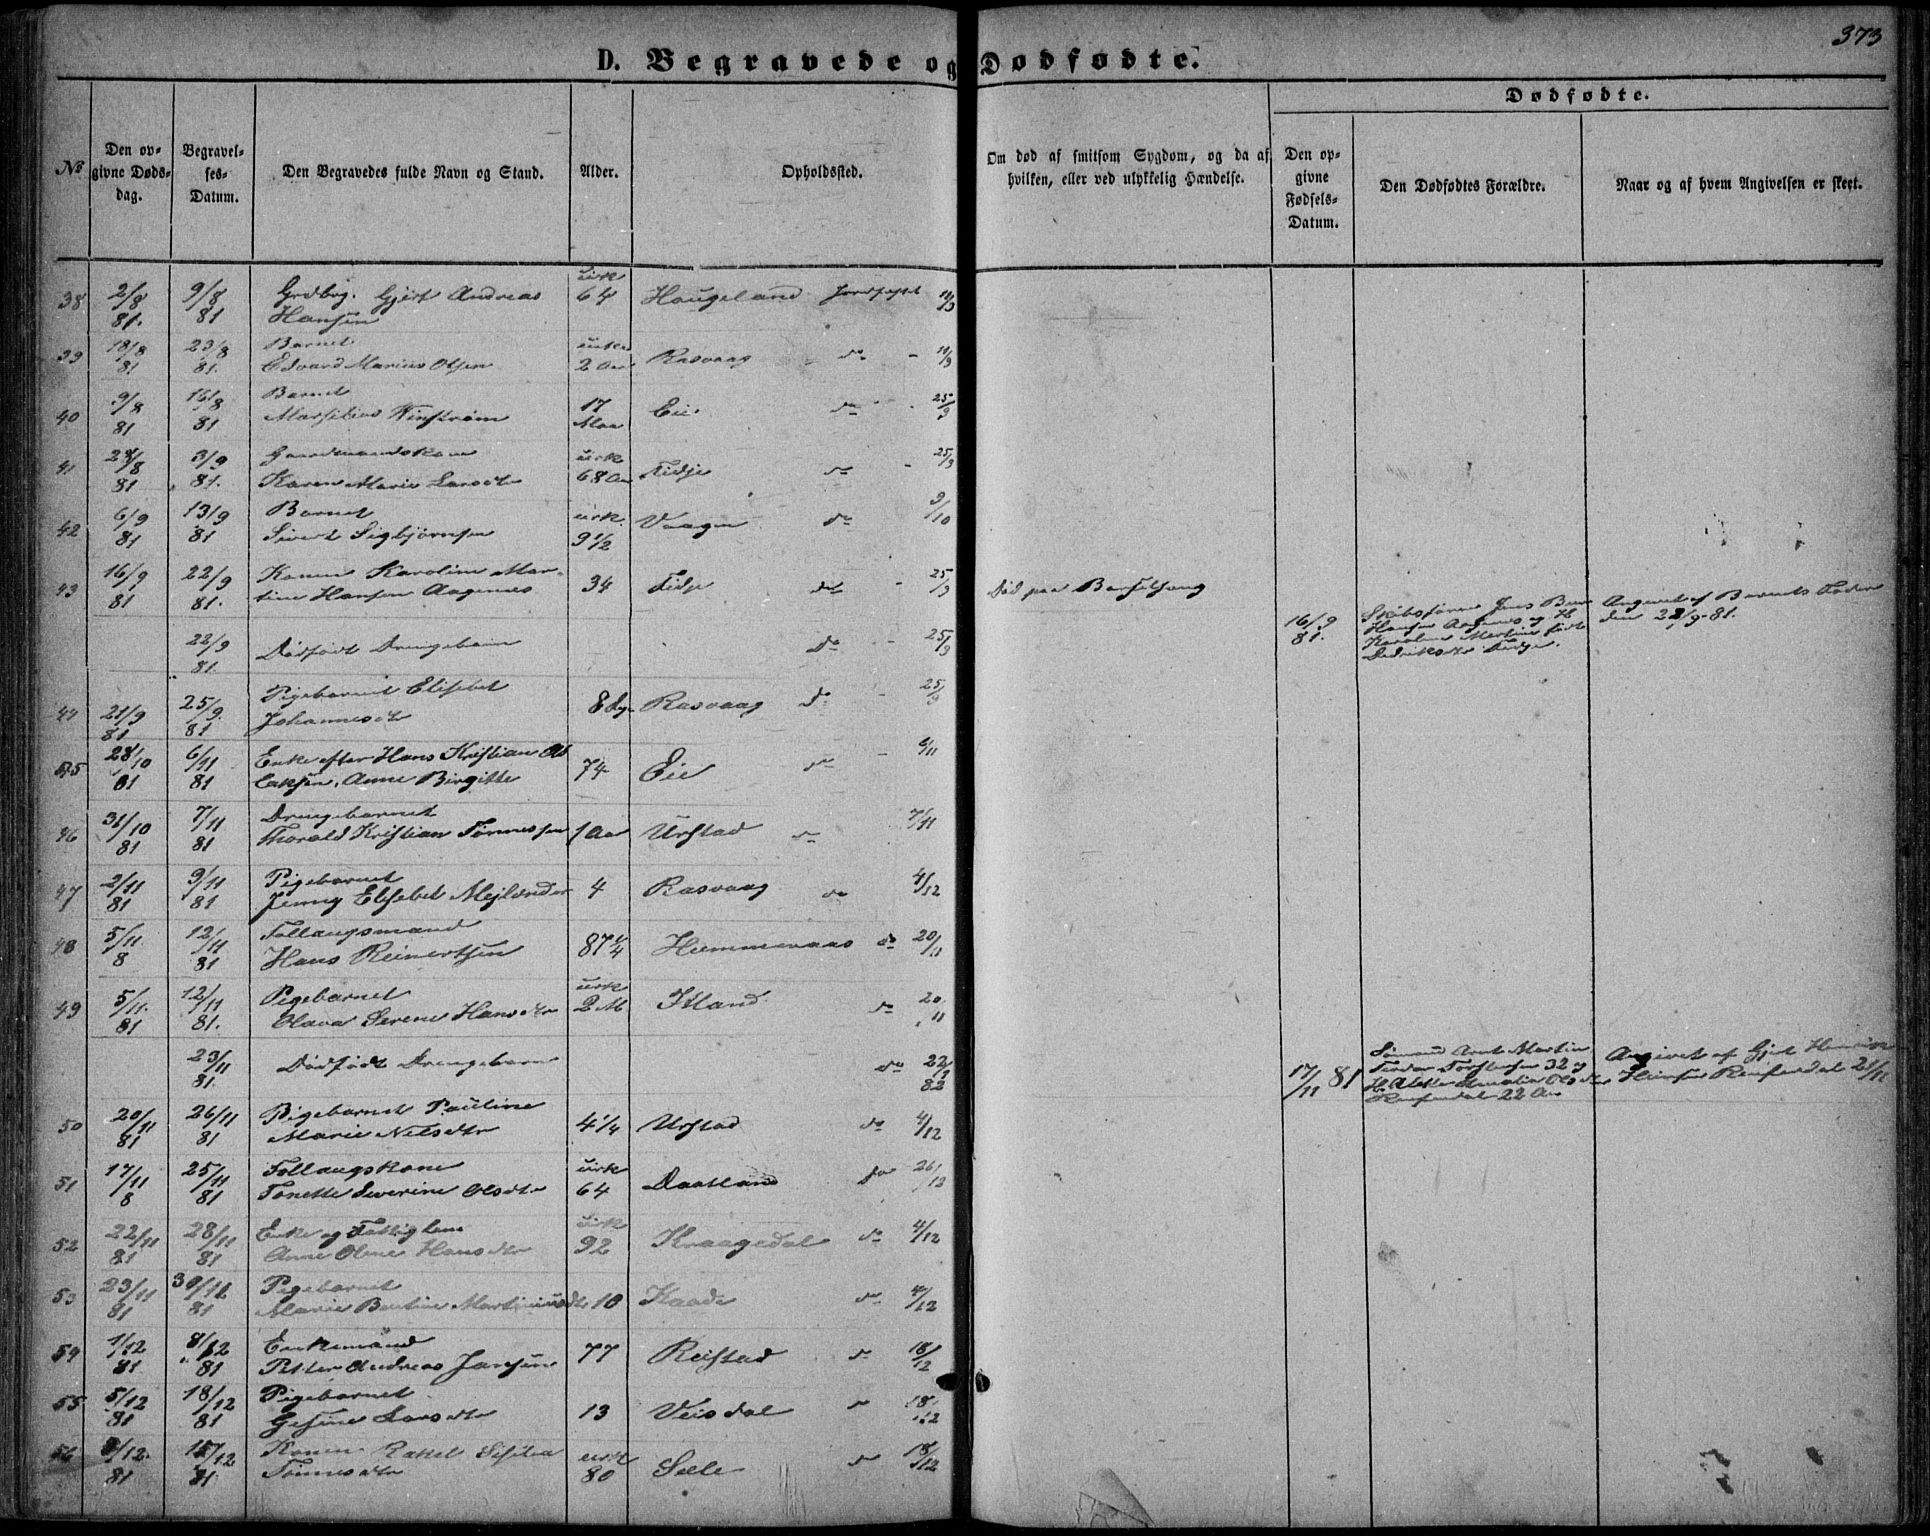 373
D. Begravede og Dødfødte.
Dødfødte.
No
Den opgivne Dødsdag.
Begravelses-Datum.
Den Begravedes fulde Navn og Stand.
Alder.
Opholdssted.
Om død af smitsom Sygdom, og da af
hvilken, eller ved ulykkelig Hændelse.
Den opgivne Fødsels-Datum.
Den Dødfødtes Forældre.
Naar og af hvem Angivelsen er skeet.
38 2/8 81. 9/8 81 Grdbrg. Gjert Andreas Hansen 64 Haugeland Jordfæstet
39 18/8 81 23/8 81. Barnet Edvard Marius Olsen 2 Aar Rasvaag do
40 9/8 81 16/8 81 Barnet Marselius Winstrøm 17 Mdr Eie do 25/9
41 81 3/9 81. Gaardmandskone Karen Marie Larsdtr 68 Aar Fidje do 25/9
42 6/9 81 13/9 81 Barnet Sivert Sigbjørnsen 9 1/2 Vaagen do 9/10
43 16/9 81 22/9 81. Konen Karoline Martine Hansen Aagenes 34 Fidje do 25/9 Død paa Barselseng
22/9 81. Dødfødt Drengebarn Do 25/9 16/9 81. Skibsfører Jens Hansen Aagenes og H Karoline Martine født Didriksdtr Fidje. Angivet af Barnets Fader den 22/9-81.
44 21/9 81 25/9 81 Pigebarnet Elisebet Johannesdtr 8 Rasvaag do 25/9
45 28/10 81 6/11 81 Enke efter Hans Kristian Anne Birgitte 74 Eie do 6/11
46 31/10 81 7/11 81 Drengebarnet Thorald Kristian Tønnessen 1 Aar Urstad do 7/11
47 2/11 81 9/11 81 Pigebarnet Jenny Elisebet Mejlænder 4 Rasvaag do 4/12
48 5/11 8 12/11 81 Follaugsmand Hans Reinertsen 87 1/4 Hummervaas do 20/11
49 5/11. 81 12/11 81. Pigebarnet Olava Serene Hansdtr 2 M Itland do 20/11
23/11 81. Dødfødt Drengebarn do 82 17/11 81 Sømand Arnt Martin 32 og H. Amalia Olsdtr Rensendal 22 Aar Angivet af Gjert Henrik Rensendal 21/11
50 20/11 81 26/11 81 Pigebarnet Pauline Marie Nilsdtr 4 1/4 Urstad do 4/12
51 17/11 8 25/11 81 Follaugskone Tonette Severine Olsdtr 64 Daatland do 26/12
52 22/11 81 28/11 81 Enke og Fattiglem Anne Olene Hansdtr 92 Kraagedal do 4/12
53 23/11 81 30/11 81 Pigebarnet Marie Bertine Martiniusdtr 10 Kaade do 4/12
54 1/12 81 8/12 81 Enkemand Petter Andreas Jansen 77 Reistad do 18/12
55 5/12 81 18/12 81 Pigebarnet Gesine Larsdtr 13 Veisdal do 18/12
56 81 15/12 81 Konen Rakel Tønnesdtr 80 Sele do 18/12